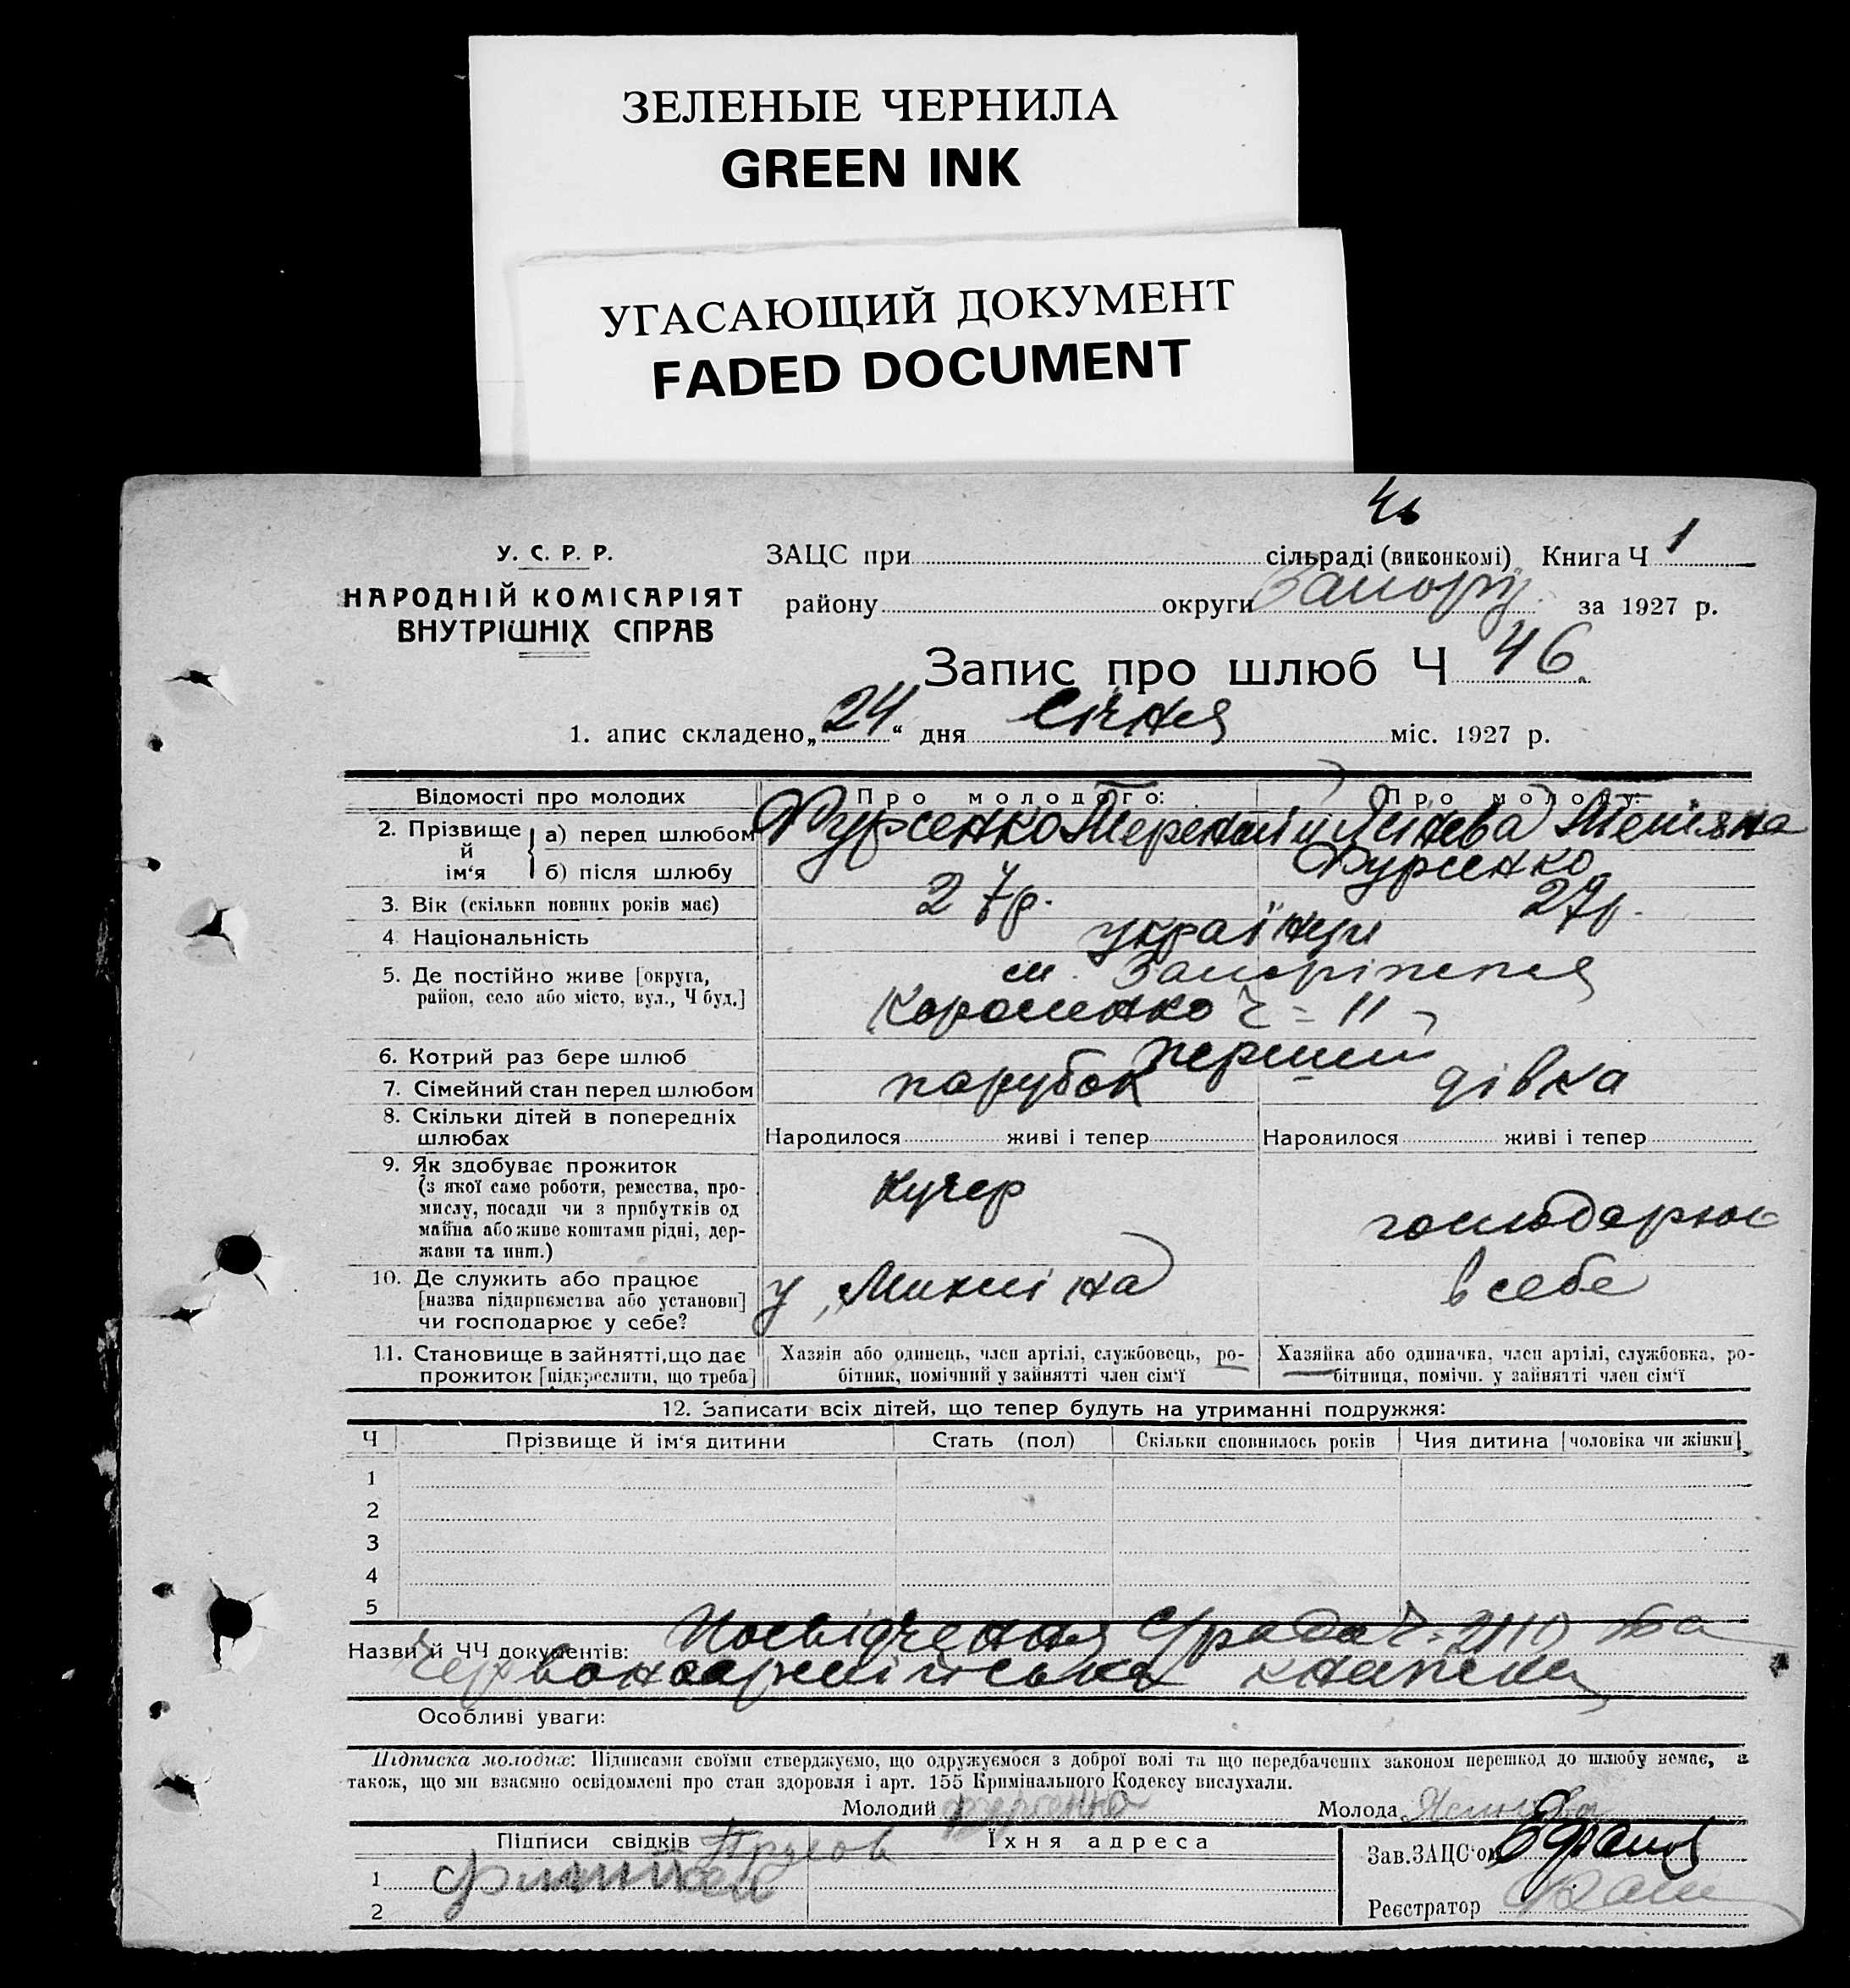 ЗЕЛЕНЫЕ ЧЕРНИЛА
GREEN INK
УГАСАЮЩИЙ ДОКУМЕНТ
FADED DOCUMENT
У. С. Р. Р.
НАРОДНІЙ КОМІСАРІЯТ
ВНУТРІШНІХ СПРАВ
ЗАЦС при сільраді (виконкомі) Книга Ч 1
району округи Запоріз. за 1927 р.
Запис про шлюб Ч 46.
1. апис складено „24“ дня Січня міс. 1927 р.
Відомості про молодих Про молодого: Про молоду:
2. Прізвище й ім‘я а) перед шлюбом Фурсенко Терентій Тетяна
б) після шлюбу Фурсенко
3. Вік (скільки повних років має) 27р. 27р.
4 Національність українці
5. Де постійно живе [округа, м. Запоріжжя
район, село або місто, вул., Ч буд.] Короленко ч = 11
6. Котрий раз бере шлюб перший
7. Сімейний стан перед шлюбом парубок дівка
8. Скільки дітей в попередніх
шлюбах Народилося живі і тепер Народилося живі і тепер
9. Як здобуває прожиток
(з якої саме роботи, ремества, про-
мислу, посади чи з прибутків од
майна або живе коштами рідні, дер-
жави та инш.)
кучер господарює
10. Де служить або працює
[назва підприємства або установи]
чи господарює у себе?
у в себе
11. Становище в зайнятті, що дає
прожиток [підкреслити, що треба]
Хазяїн або одинець, член артілі, службовець, ро-
бітник, помічний у зайнятті член сім‘ї
Хазяйка або одиначка, член артілі, службовка, ро-
бітниця, помічн. у зайнятті член сім‘ї
12. Записати всіх дітей, що тепер будуть на утриманні подружжя:
Ч Прізвище й ім‘я дитини Стать (пол) Скільки сповнилось років Чия дитина [чоловіка чи жінки]
1
2
3
4
5
Назви й ЧЧ документів: Посвідчення ч. 2110 та
Червоноармійська книжка
Особливі уваги:
Підписка молодих: Підписами своїми стверджуємо, що одружуємося з доброї волі та що передбачених законом перешкод до шлюбу немає, а
також, що ми взаємно освідомлені про стан здоровля і арт. 155 Кримінального Кодексу вислухали.
Молодий Фурсенко Молода
Підписи свідків Їхня адреса
Зав. ЗАЦС‘ом
1
2
Реєстратор